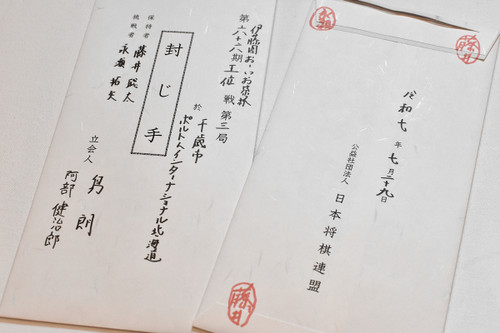 伊藤園お〜いお茶杯
第六十六期王位戦第三局
於 千歳市
ポルトムインターナショナル北海道
封じ手
保持者 藤井聡太
挑戦者 永瀬拓矢
立会人 島朗
阿部健治郎
永瀬
藤井
令和七年七月二十九日
公益社団法人 日本将棋連盟
藤井